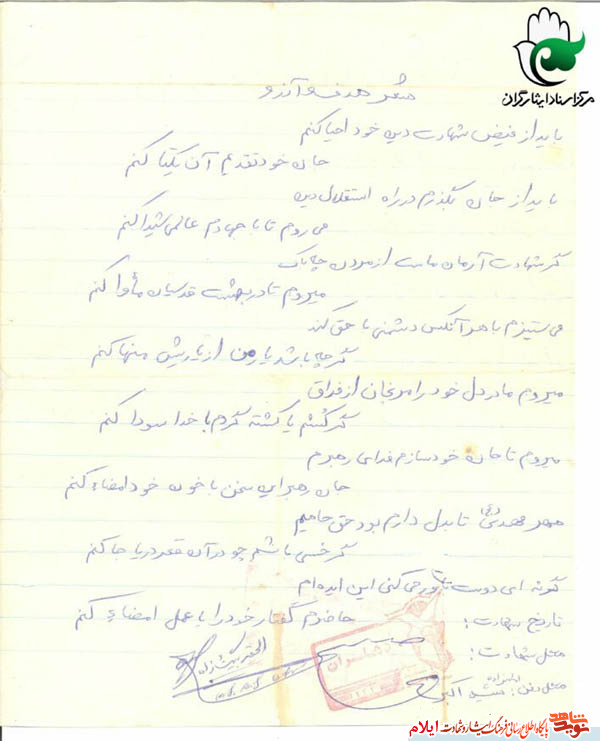 مرکز اسناد ایثارگران
شعر هدف و آرزو
باید از فیض شهادت دین خود احیا کنم
جان خود تقدیم آن یکتا کنم
باید از جان بگذرم در راه استقلال دین
می روم تا با جهادم عالمی شیدا کنم
گر شهادت آرمان ماست از مردن چه باک
میروم تا در بهشت قدسیان مأوا کنم
می ستیزم با هر آنکس دشمنی با حق کند
گر چه باشد یار من از یاریش منها کنم
میروم مادر دل خود را مرنجان از فراق
گر کُشم یا کشته گردم با خدا سودا کنم
میروم تا جان خود سازم فدای رهبرم
جان رهبر این سخن با خون خود امضاء کنم
مهر مهدی تا بدل دارم بود حق حامیم
گر خسی باشم چو در آن قعر دریا جا کنم
گر نه ای دوست تصور می کنی این ایده ام
حاضرم گفتار خود را با عمل امضاء کنم
تاریخ شهادت :
محل شهادت :
محل دفن : اکبر
الحقیر
نوید شاهد
پایگاه اطلاع رسانی فرهنگ ایثار و شهادت ایلام